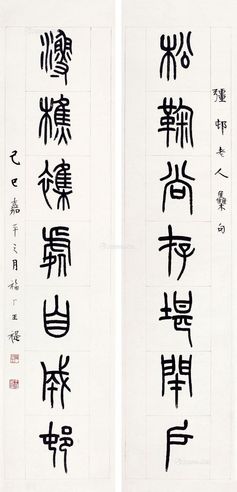 彊邨老人集句
松鞠尚存堪閉戶
漁樵襍處自成邨
己巳嘉平之月福厂王禔